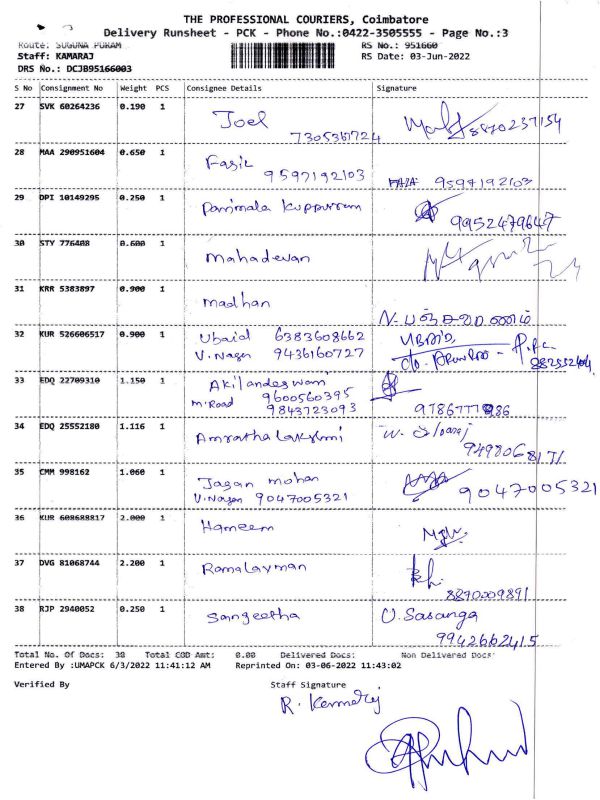 THE PROFESSIONAL COURIERS, Coimbatore
Delivery Runsheet - PCK - Phone No.:0422-3505555 - Page No.:3
Route: SUGUNA PURAM RS No.: 951660
Staff: KAMARAJ RS Date: 03-Jun-2022
DRS No.: DCJB95166003
S No Consignment No Weight PCS Consignee Details Signature
27 SVK 60264236 0.190 1 Joel
7305361724 8870237154
28 MAA 290951604 0.650 1 Fasil
9597192103 9597192103
29 DPI 10149295 0.250 1 Parimala Kuppuram
9952479647
30 STY 776408 0.600 1 Mahadevan
31 KRR 5383897 0.900 1 madhan
32 KUR 526606517 0.900 1 Ubaid 6383608662 UBAID
V.Nagar 9436160727 c/o
33 EDQ 22709310 1.150 1 Akilandeswari
m.Road 9600560395
9843723093
34 EDQ 25552180 1.116 1 Amrathalakshmi
35 CMM 998162 1.060 1 Jagan mohan
V.Nagar 9047005321 9047005321
36 KUR 608688817 2.000 1 Hameem
37 DVG 81068744 2.200 1 Ramalayman
8890009891
38 RJP 2940052 0.250 1 Sangeetha U. Sasanga
9942662415
Total No. Of Docs: 38 Total COD Amt: 0.00 Delivered Docs: Non Delivered Docs:
Entered By :UMAPCK 6/3/2022 11:41:12 AM Reprinted On: 03-06-2022 11:43:02
Verified By Staff Signature
R. Kamaraj